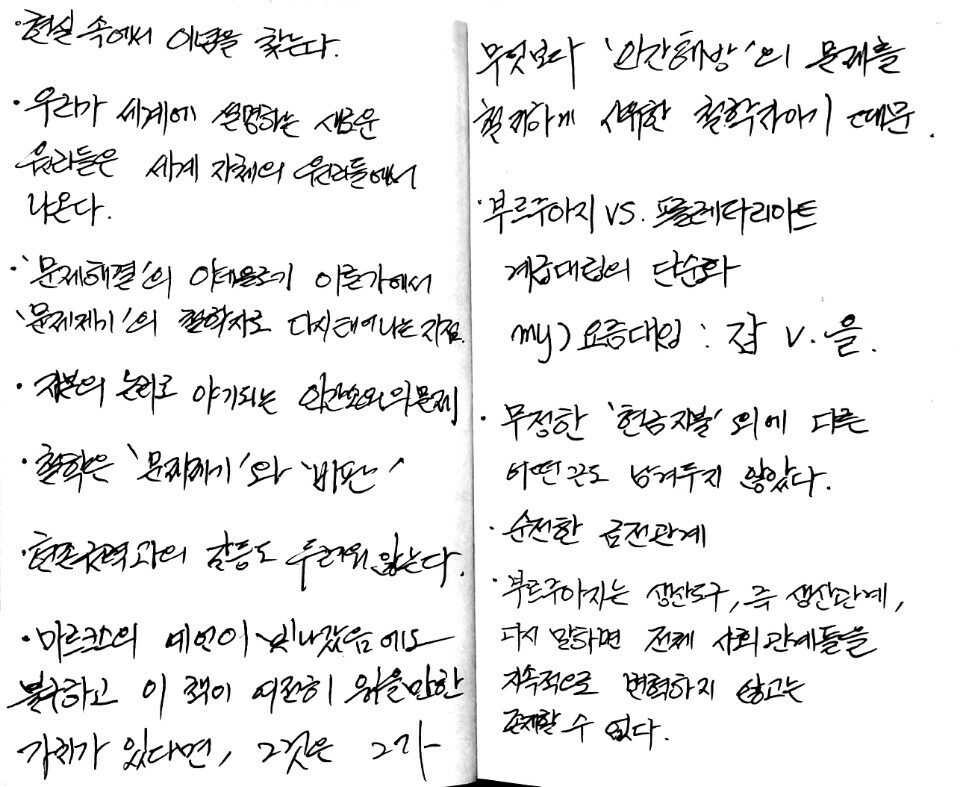 ·현실 속에서 이념을 찾는다.
·우리가 세계에 설명하는 새로운
원리들은 세계 자체의 원리들에서
나온다.
·'문제해결'의 이데올로기 이론가에서
'문제제기'의 철학자로 다시 태어나는 지점.
·자본의 논리로 야기되는 인간소외의 문제
·철학은 '문제제기'와 '비판'
·현존권력과의 갈등도 두려워 않는다.
·마르크스의 예언이 빗나갔음에도
불구하고 이 책이 여전히 읽을만한
가치가 있다면, 그것은 그가
무엇보다 '인간해방'의 문제를
철저하게 사유한 철학자이기 때문.
·부르주아지 VS. 프롤레타리아트
계급대립의 단순화
my) 요즘대입 : 갑 V. 을.
·무정한 '현금지불' 외에 다른
어떤 끈도 남겨두지 않았다.
·순전한 금전관계
·부르주아지는 생산도구, 즉 생산관계,
다시 말하면 전체 사회관계들을
지속적으로 변혁하지 않고는
존재할 수 없다.